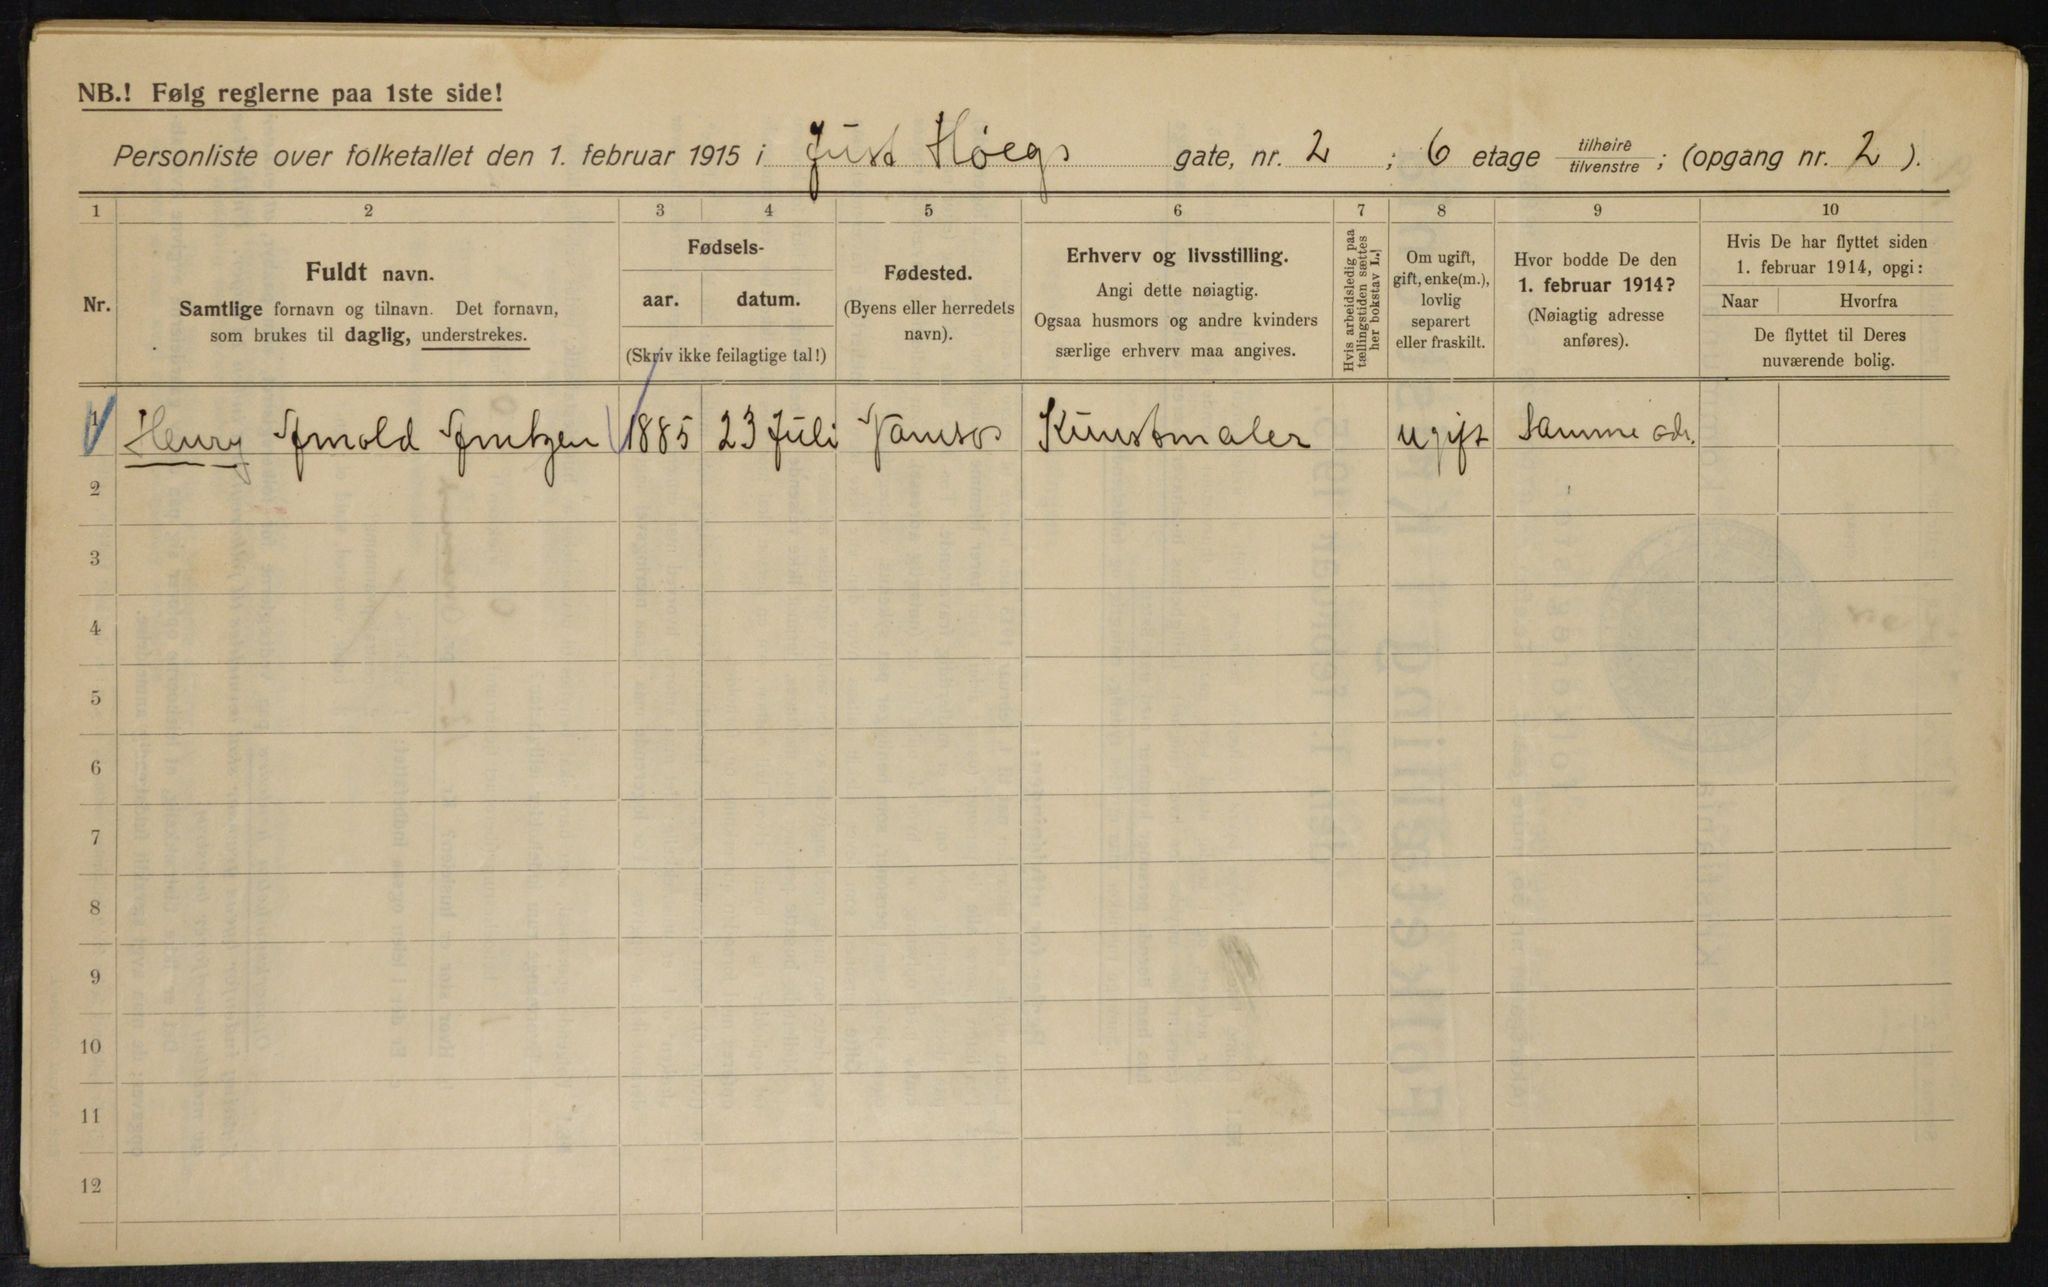 NB.! Følg reglerne paa 1ste side!
Personliste over folketallet den 1. februar 1915 i Just Høegs gate, nr. 2 ; 6 etage tilhøire/tilvenstre ; (opgang nr. 2 ).
1 2 3 4 5 6 7 8 9 10
Nr.
Fuldt navn.
Samtlige fornavn og tilnavn. Det fornavn,
som brukes til daglig, understrekes.
Fødsels-
aar. datum.
(Skriv ikke feilagtige tal!)
Fødested.
(Byens eller herredets
navn).
Erhverv og livsstilling.
Angi dette nøiagtig.
Ogsaa husmors og andre kvinders
særlige erhverv maa angives.
Hvis arbeidsledig paa
tællingstiden sættes
her bokstav L.!
Om ugift,
gift, enke(m.),
lovlig
separert
eller fraskilt.
Hvor bodde De den
1. februar 1914?
(Nøiagtig adresse
anføres).
Hvis De har flyttet siden
1. februar 1914, opgi:
Naar Hvorfra
De flyttet til Deres
nuværende bolig.
1 Henry Arnold Arntzen 1885 23 Juli Namsos Kunstmaler ugift Samme adr.
2
3
4
5
6
7
8
9
10
11
12